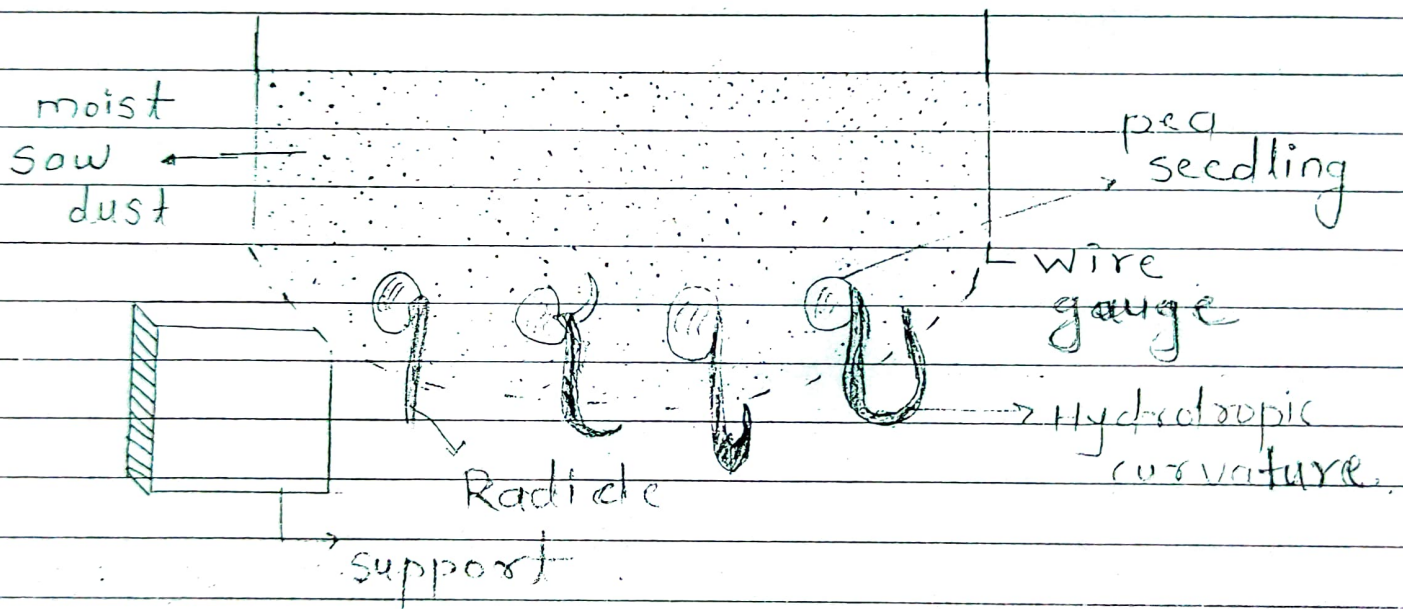 moist
saw
dust
pea
seedling
wire
gauge
Hydrotropic
curvature.
Radicle
support